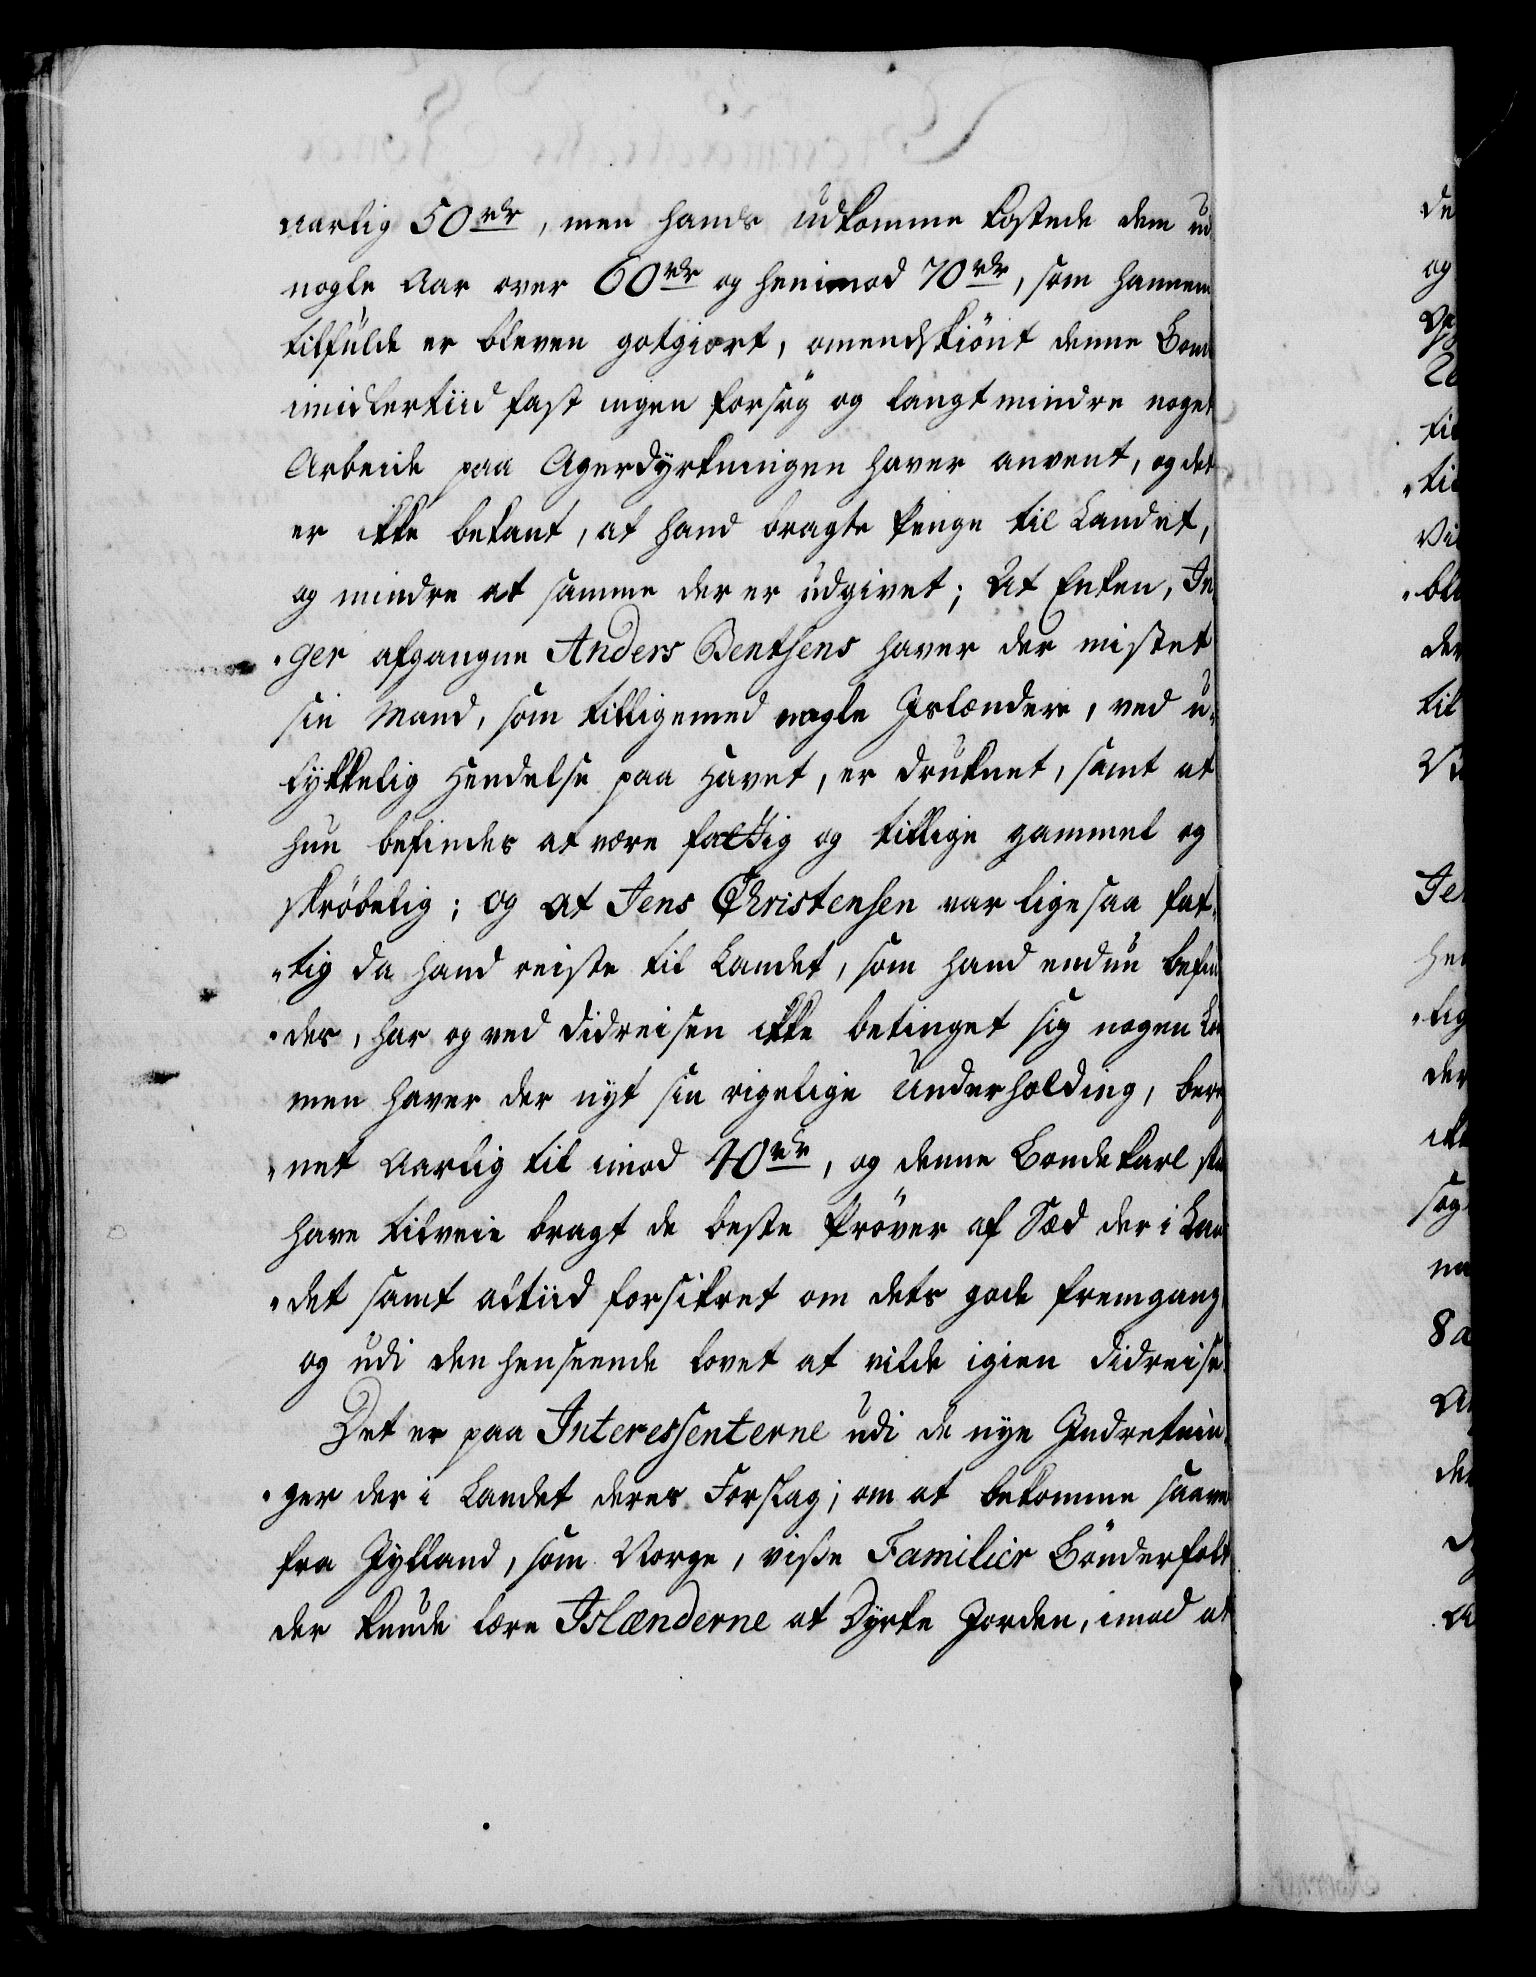 aarlig 50 rdr, men hands udkomme kostede dem ud
nogle Aar over 60 rdr og henimod 70 rdr, som hannem
tilfulde er bleven gotgiort, omendskiönt denne Bonde
imidlertiid fast ingen forsög og langt mindre noget
Arbeide paa Agerdyrkningen haver anvent, og det
er ikke bekant, at hand bragte Penge til Landet,
og mindre at samme der er udgivet; At Enken, In-
ger afgangne Anders Bentsens haver der mistet
sin Mand, som tilligemed nogle Islændere, ved u-
lykkelig Hendelse paa Havet, er druknet, samt at
hun befindes at være fattig og tillige gammel og
skröbelig; og at Jens Christensen var ligesaa fat-
tig da hand reiste til Landet, som hand endnu befin
des, har og ved didreisen ikke betinget sig nogen
men haver der nyt sin rigelige Underholding, bereg
net Aarlig til imod 40 rdr, og denne Bondekarl skal
have tilveie bragt de beste Pröver af Sæd der i Lan
det samt altiid forsikret om dets gode fremgang,
og udi den henseende lovet at vilde igien didreise.
Det er paa Interessenterne udi de nye Indretnin-
ger der i Landet deres Forslag, om at bekomme saavel
fra Jylland, som Norge, visse Familier Bönderfolk
der kunde lære Islænderne at Dyrke Jorden, imod at